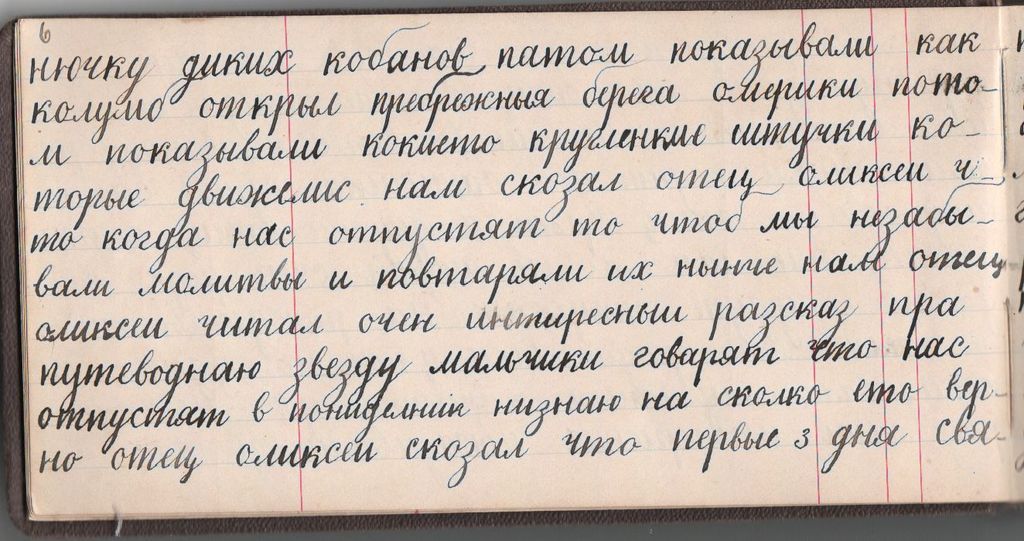 6
нючку диких кобанов патом показывали как
колумб открыл пребрежныя берега омерики пото-
м показывали кокието кругленкие штучки ко-
торые движелис нам скозал отец оликсеи ч-
то когда нас отпустят то чтоб мы незабы-
вали молитвы и повтаряли их нынче нам отец
оликсеи читал очен интиресныи разсказ пра
путеводнаю звезду мальчики говарят что нас
отпустят в пониделник низнаю на сколко ето вер-
но отец оликсеи скозал что первые 3 дня свя-